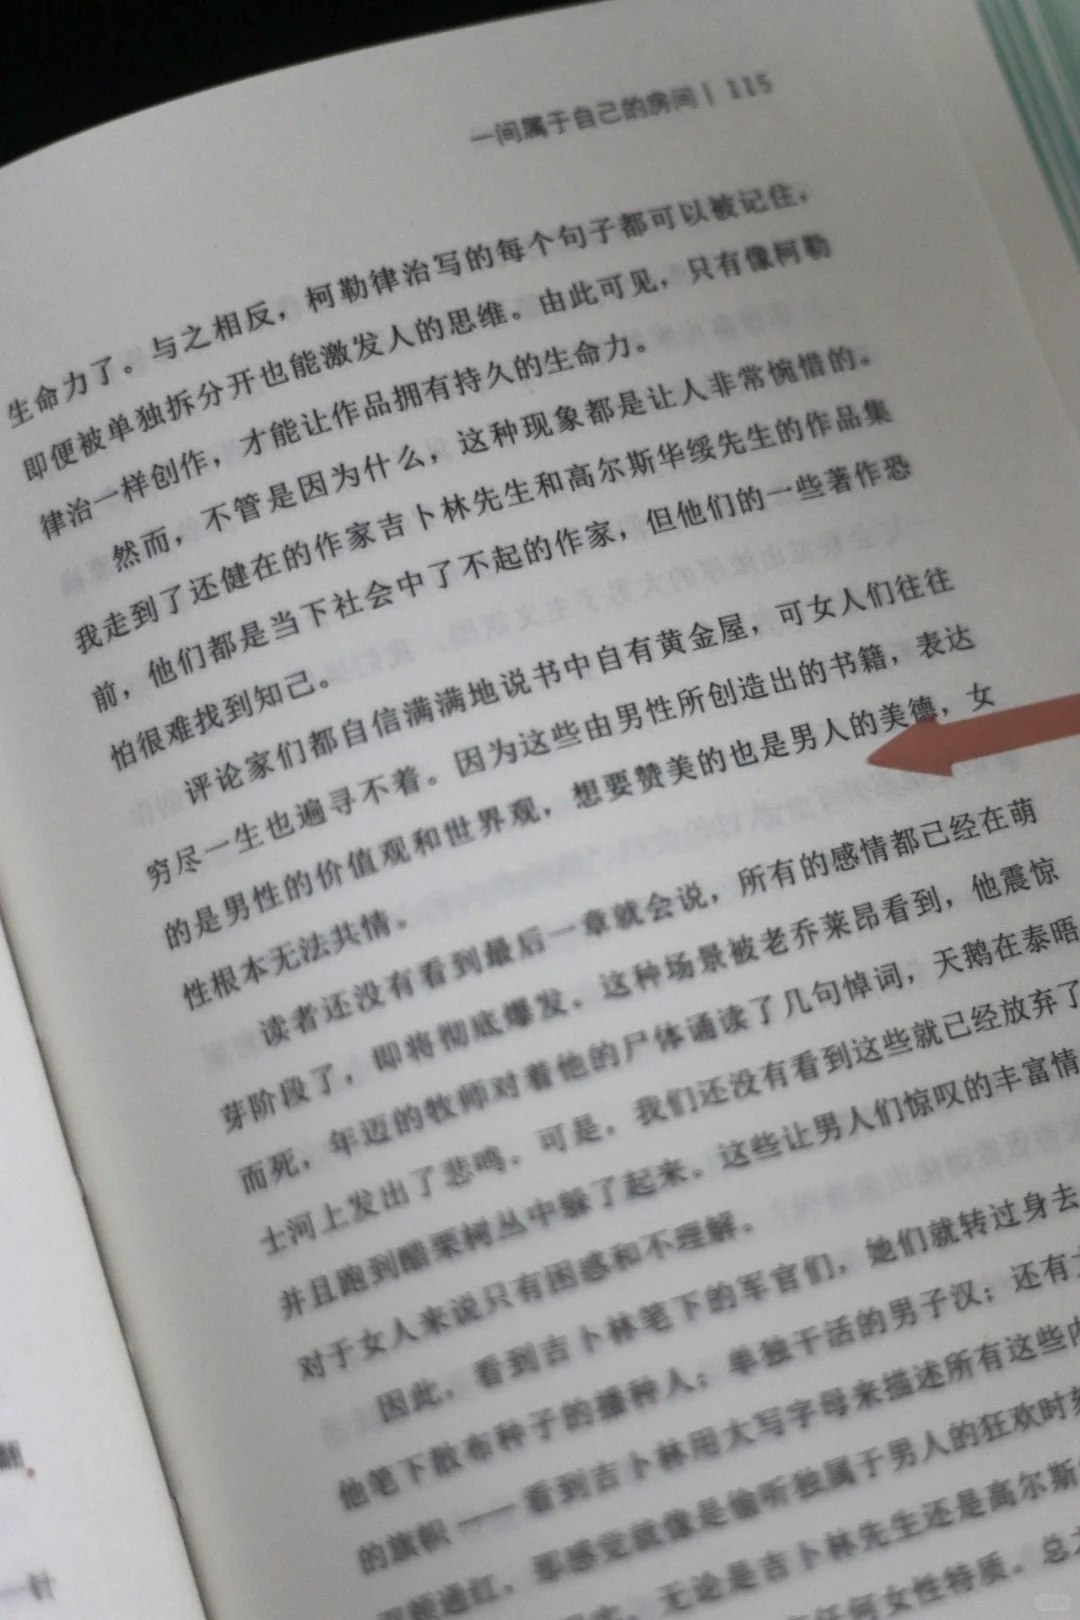 一间属于自己的房间 | 115
生命力了。与之相反，柯勒律治写的每个句子都可以被记住，
即便被单独拆分开也能激发人的思维。由此可见，只有像柯勒
律治一样创作，才能让作品拥有持久的生命力。
然而，不管是因为什么，这种现象都是让人非常惋惜的。
我走到了还健在的作家吉卜林先生和高尔斯华绥先生的作品集
前，他们都是当下社会中了不起的作家，但他们的一些著作恐
怕很难找到知己。
评论家们都自信满满地说书中自有黄金屋，可女人们往往
穷尽一生也遍寻不着。因为这些由男性所创造出的书籍，表达
的是男性的价值观和世界观，想要赞美的也是男人的美德，女
性根本无法共情。
读者还没有看到最后一章就会说，所有的感情都已经在萌
芽阶段了，即将彻底爆发。这种场景被老乔莱昂看到，他震惊
而死，年迈的牧师对着他的尸体诵读了几句悼词，天鹅在泰晤
士河上发出了悲鸣。可是，我们还没有看到这些就已经放弃了
并且跑到醋栗树丛中躲了起来。这些让男人们惊叹的丰富情
对于女人来说只有困惑和不理解。
因此，看到吉卜林笔下的军官们，她们就转过身去
他笔下散布种子的播种人；单独干活的男子汉；还有
的旗帜——看到吉卜林用大写字母来描述所有这些内
通红，那感觉就像是偷听独属于男人的狂欢时刻
无论是吉卜林先生还是高尔斯
任何女性特质。总
翻
一针